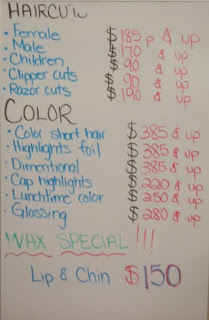 HAIRCUT
• Female $185 p & up
• Male $170 & up
• Children $90 & up
• Clipper cuts $90 & up
• Razor cuts $190 & up
COLOR
• Color short hair $385 & up
• Highlights foil $385 & up
• Dimentional $385 & up
• Cap highlights $220 & up
• Lunchtime color $250 & up
• Glossing $280 & up
WAX SPECIAL!!!
Lip & Chin $150